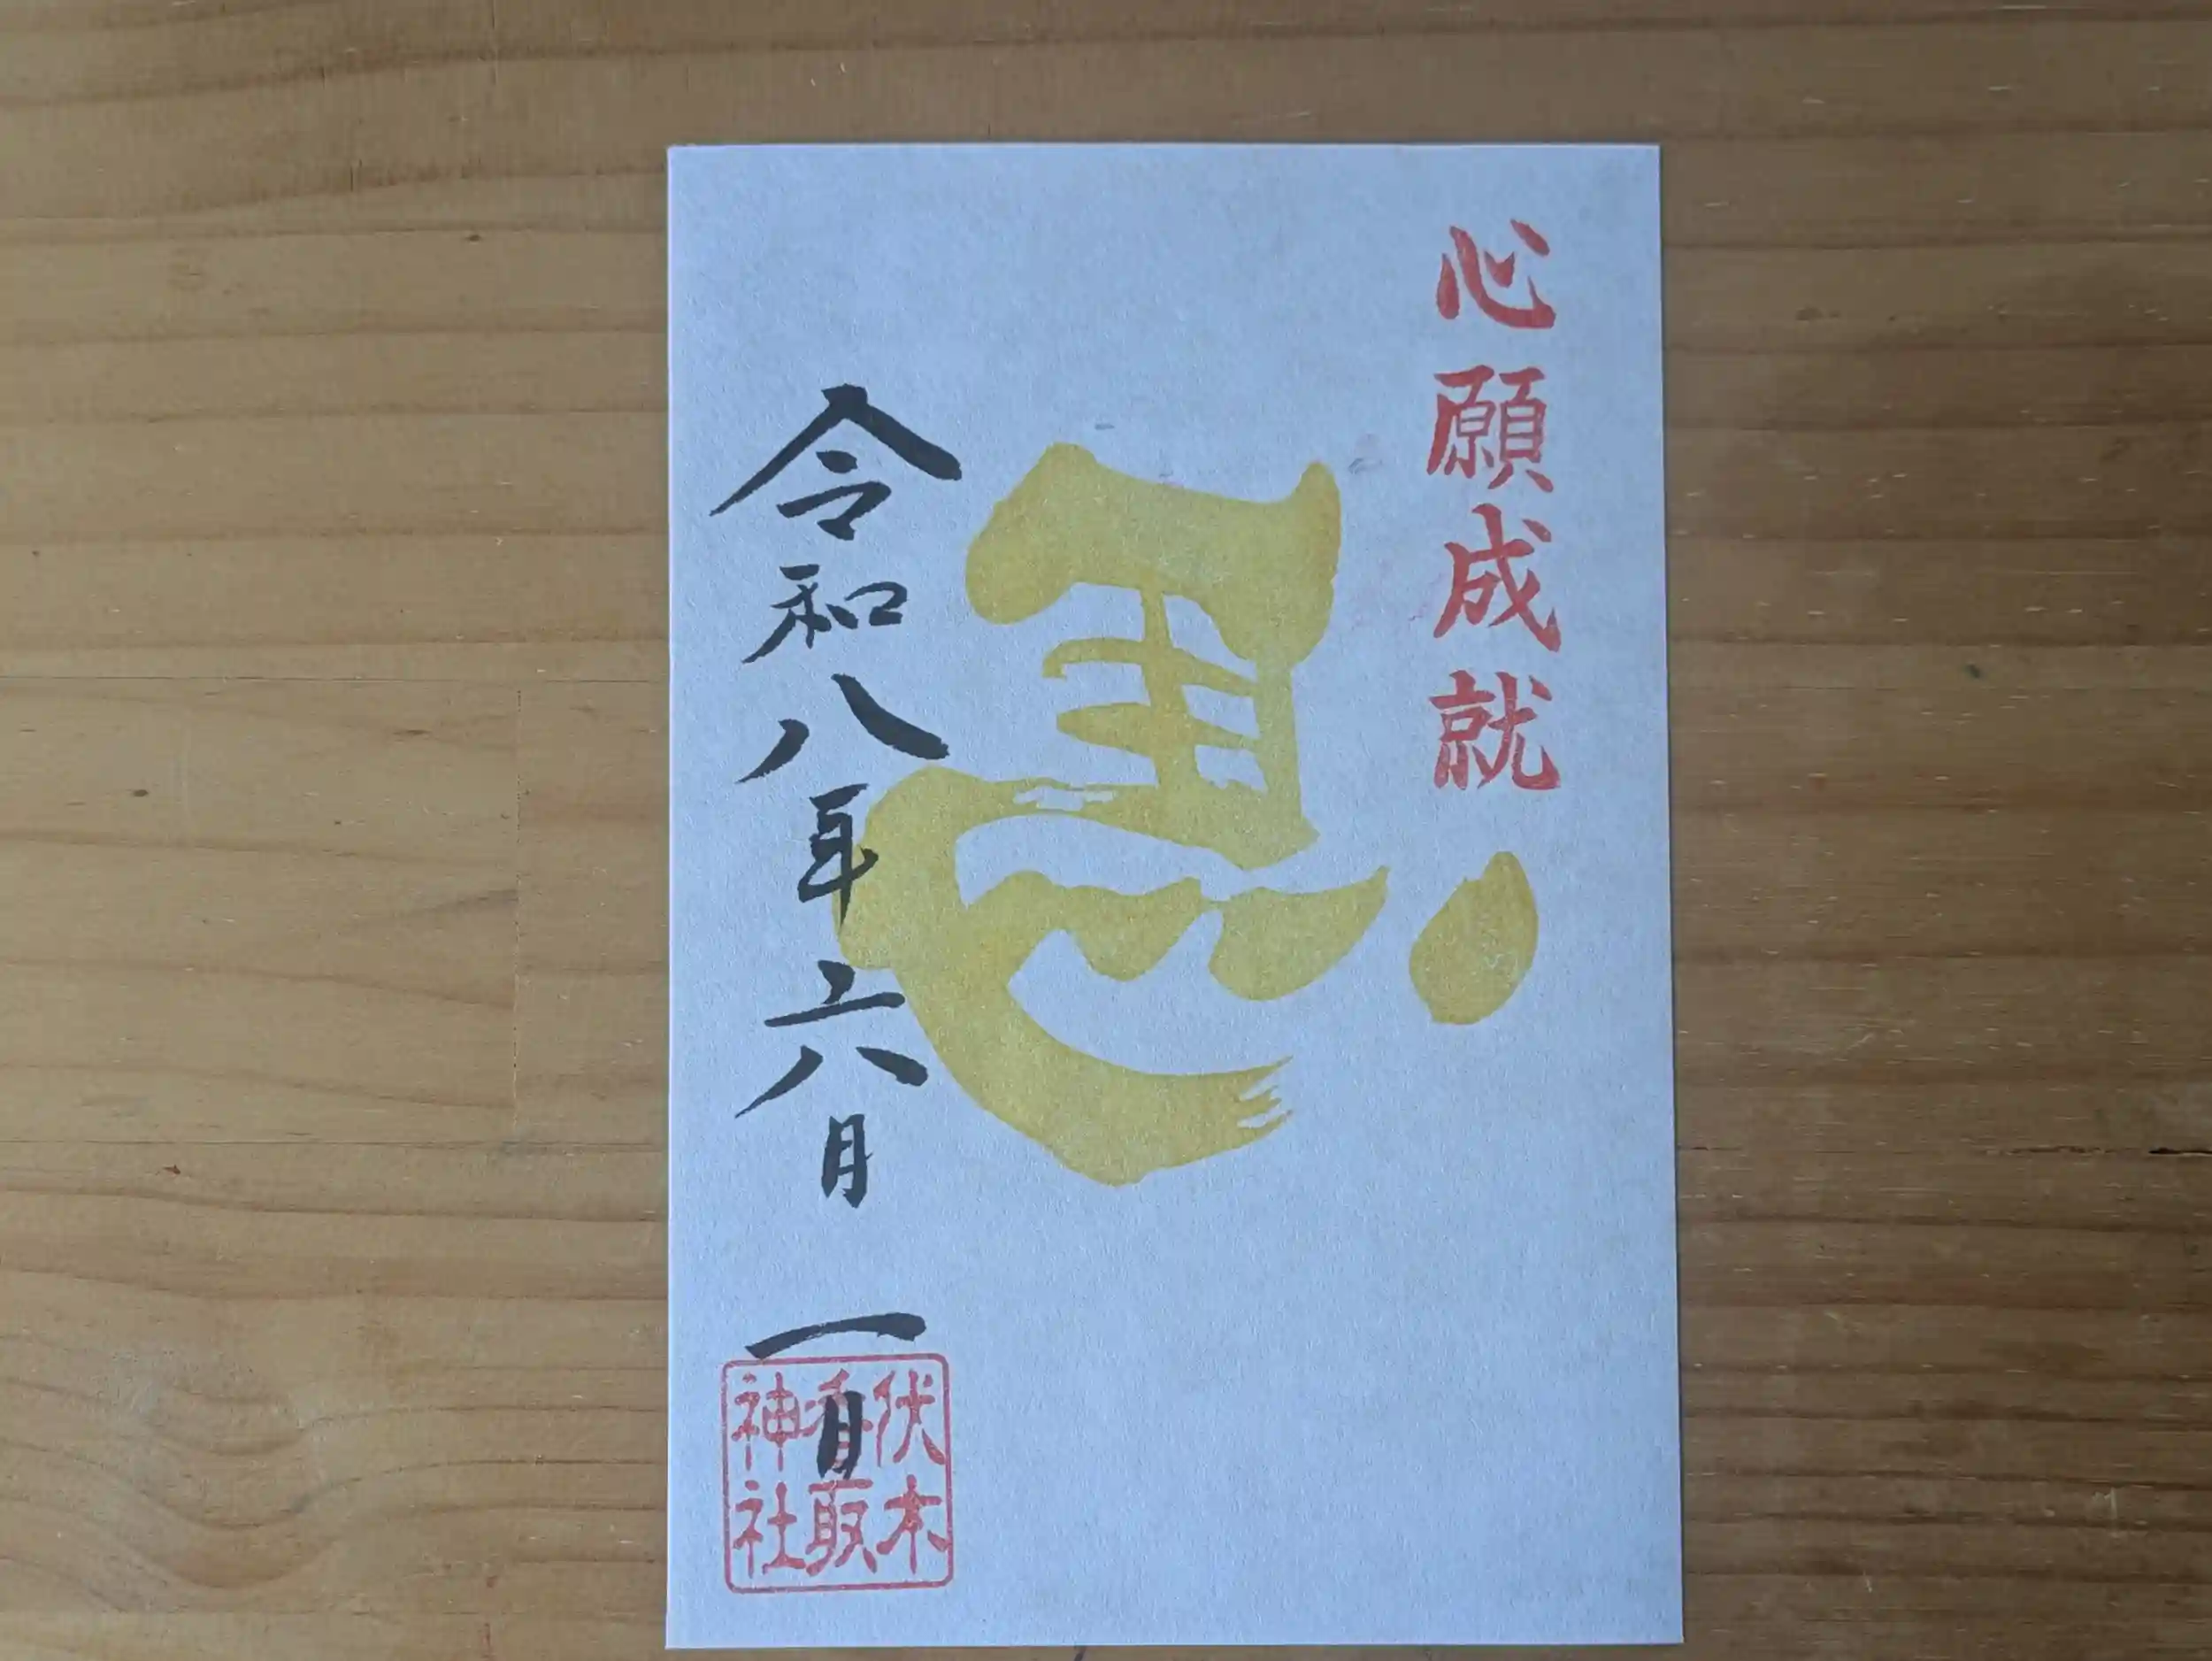 心願成就
馬
令和八年六月一日
伏木
香取
神社